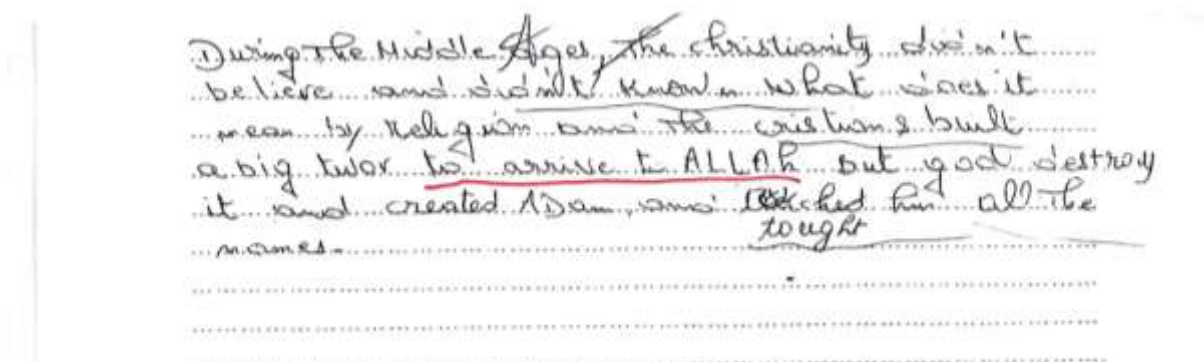 During The Middle Ages, The christianity didn't
believe and didn't know what does it
mean by Religion and the cristians built
a big twor to arrive to ALLAh but god destroy
it and created ADam, and ched him all The
tought
names.